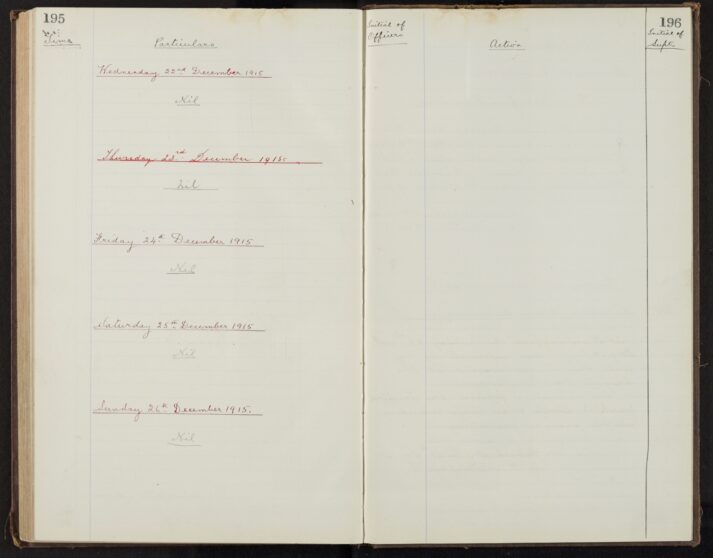 195
Time
Particulars
Wednesday 22nd December 1915
Nil
Thursday 23rd December 1915
Nil
Friday 24th December 1915
Nil
Saturday 25th December 1915
Nil
Sunday 26th December 1915.
Nil
Initial of
Officers
Action
196
Initial of
Supt.